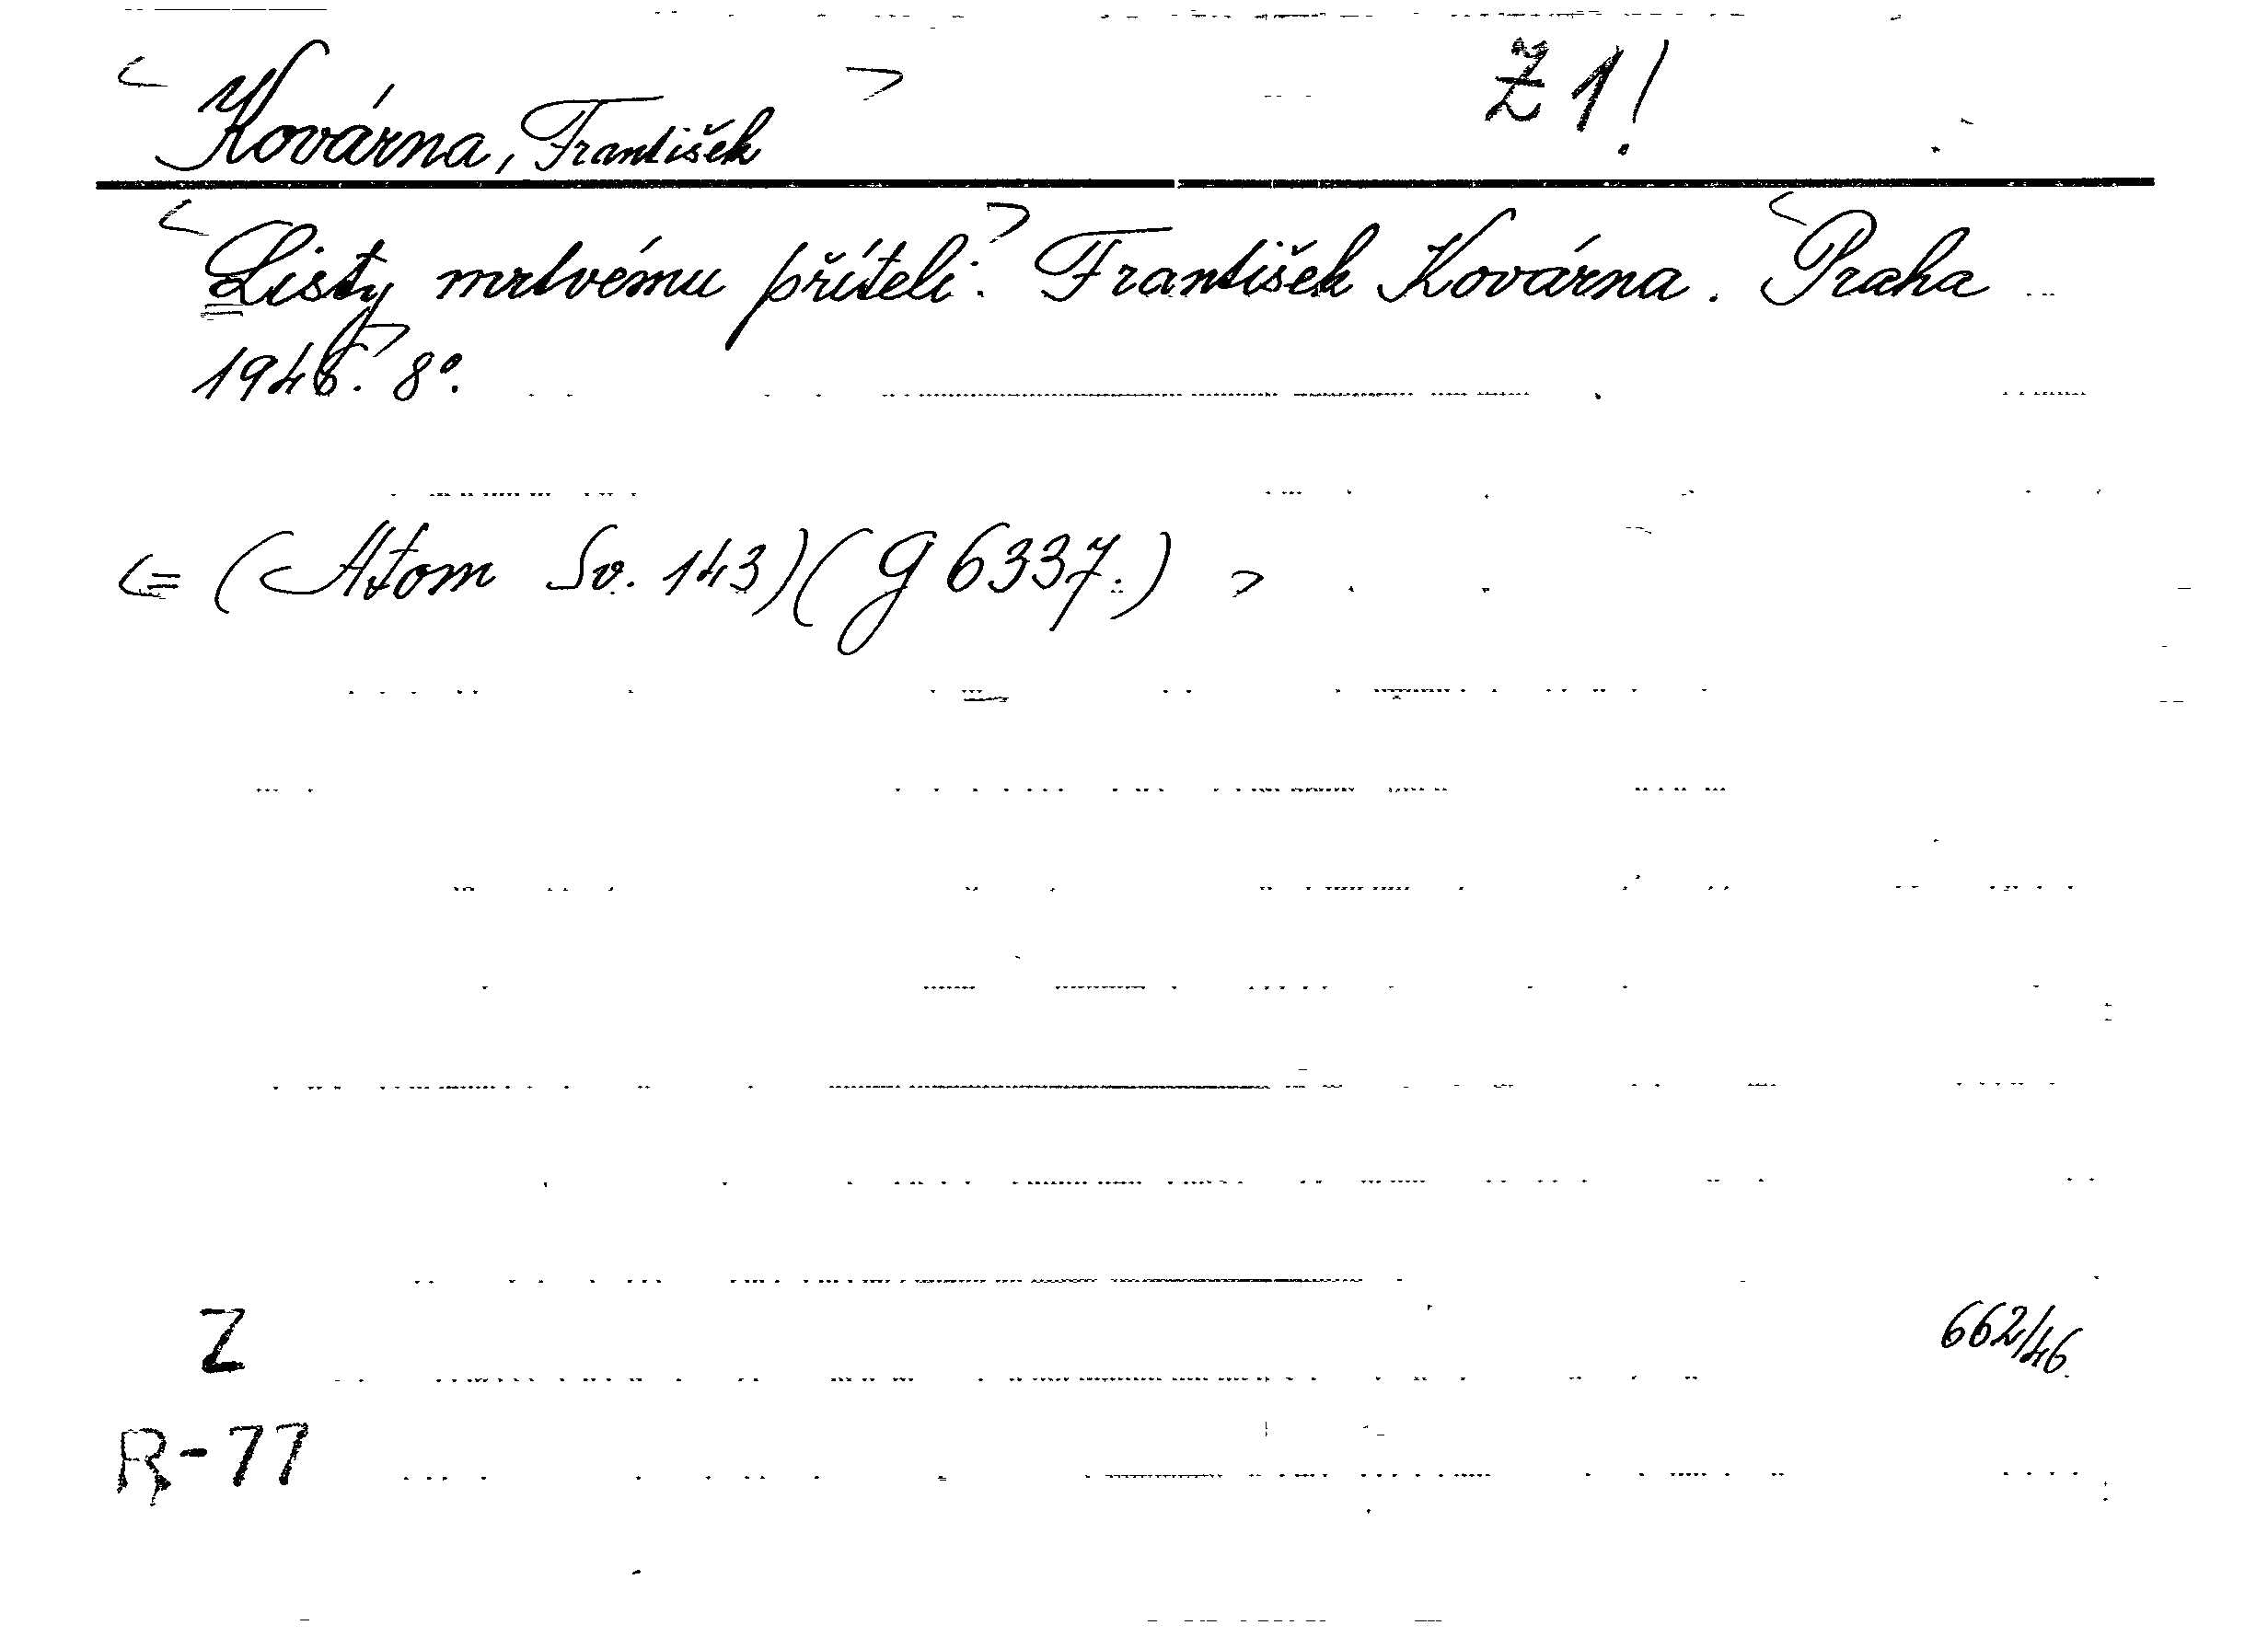 < Kovárna, František > Ž 1!
< Listy mrtvému příteli.> František Kovárna. < Praha
1946.> 8°.
<= (Atom Sv. 143)(G 6337.) >
Z
662/46
R-77